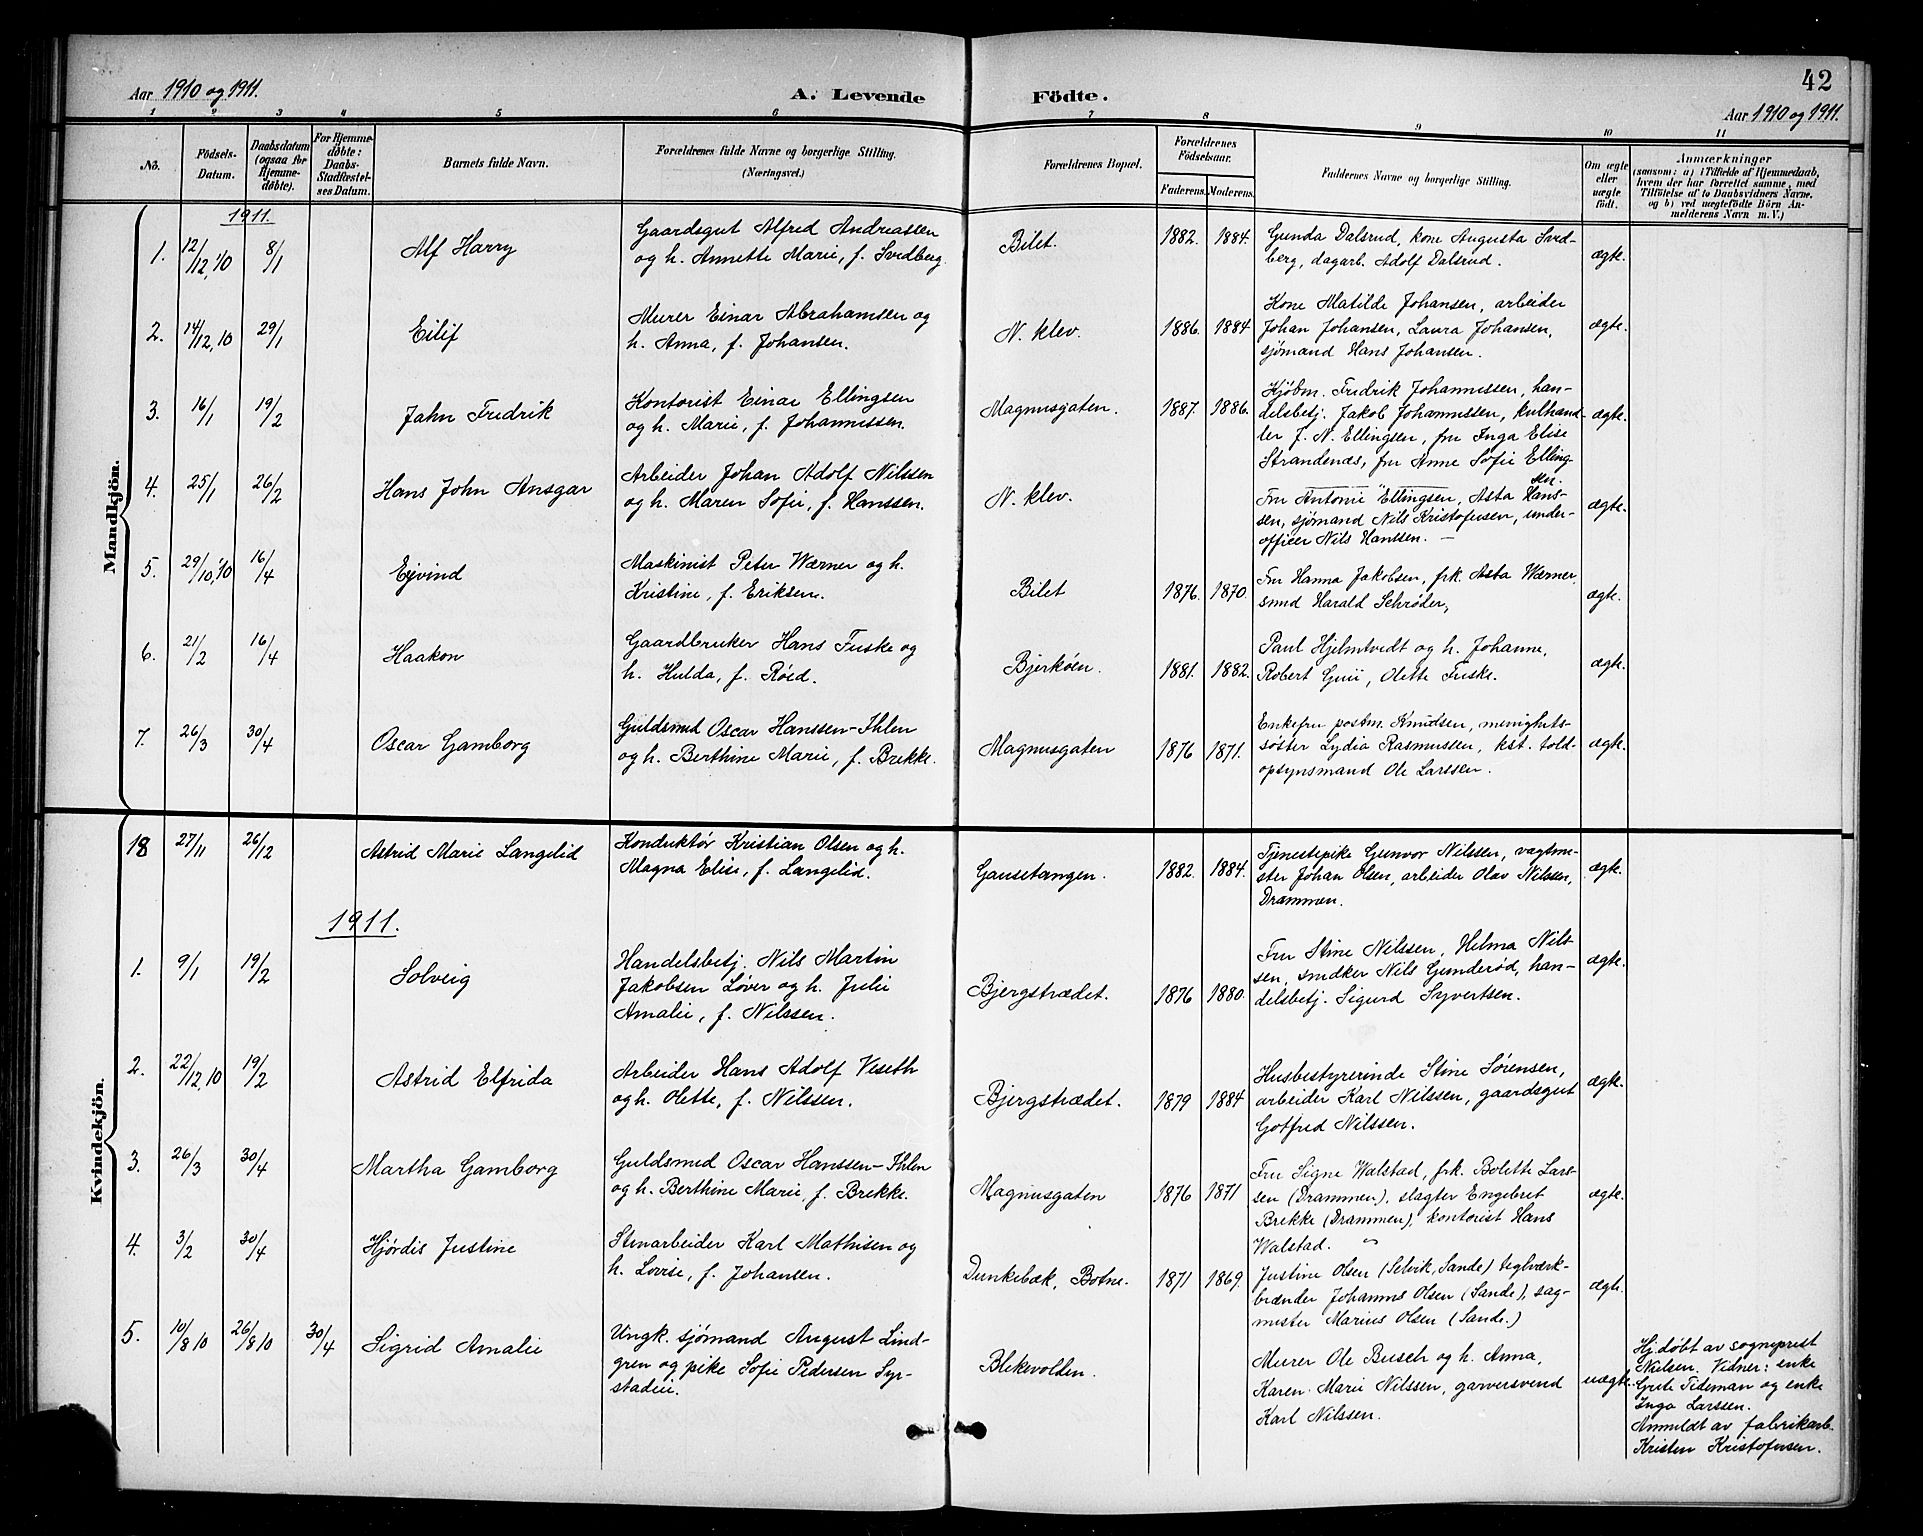 42
Aar 1910 og 1911.
A. Levende Födte.
Aar 1910 og 1911.
1 2 3 4 5 6 7 8 9 10 11
Nö.
Födsels-Datum.
Daabsdatum (ogsaa for Hjemmedøbte).
For Hjemmedøbte: Daabs-Stadfæstelses Datum.
Barnets fulde Navn.
Forældrenes fulde Navne og borgerlige Stilling. (Næringsvei.)
Forældrenes Bopæl.
Forældrenes Födselsaar.
Faderens. Moderens.
Faddernes Navne og borgerlige Stilling.
Om ægte eller uægte födt.
Anmærkninger
(saasom: a) i Tilfælde af Hjemmedaab, hvem der har forrettet samme, med Tilföielse af to Daabsvidners Navne, og b) ved uægtefödte Börn Anmelderens Navn m. V.)
Mandkjön.
1911.
1. 12/12,'10 8/1 Alf Harry
Gaardsgut Alfred Andreassen
og h. Annette Marie, f. Svedberg.
Bilet. 1882. 1884.
Gunda Dalsrud, kone Augusta Sved-
berg, dagarb. Adolf Dalsrud.
ægte.
2. 14/12,10 29/1 Eilif
Murer Einar Abrahamsen og
h. Anna, f. Johansen.
N. klev. 1886. 1884
Kone Matilde Johansen, arbeider
Johan Johansen, Laura Johansen,
sjømand Hans Johansen.
ægte.
3. 16/1 19/2 Jahn Fredrik
Kontorist Einar Ellingsen
og h. Marie, f. Johannessen.
Magnusgaten. 1887. 1886.
Kjøbm. Fredrik Johannessen, han-
delsbetj. Jakob Johannessen, kulhand-
ler J. N. Ellingsen, fru Inga Elise
Strandenæs, fru Anne Sofie Elling-
sen.
ægte.
4. 25/1 26/2 Hans John Ansgar
Arbeider Johan Adolf Nilssen
og h. Maren Sofie, f. Hanssen.
N. klev.
Fru Antonie Ellingsen, Asta Hans-
sen, sjømand Nils Kristofersen, under-
officer Nils Hanssen. —
ægte.
5. 29/10,'10 16/4 Ejvind
Maskinist Peter Wærner og h.
Kristine, f. Eriksen.
Bilet 1876. 1870.
Fru Hanna Jakobsen, frk. Asta Wærner,
smed Harald Schrøder,
ægte.
6. 21/2 16/4 Haakon
Gaardbruker Hans Fuske og
h. Hulda, f. Røed.
Bjerkøen. 1881. 1882.
Paul Hjelmtvedt og h. Johanne,
Robert Guii, Olette Fuske.
ægte.
7. 26/3 30/4 Oscar Gamborg
Guldsmed Oscar Hanssen-Ihlen
og h. Berthine Marie, f. Brekke.
Magnusgaten 1876 1871.
Enkefru postm. Knudsen, menighets-
søster Lydia Rasmussen, kst. told-
opsynsmand Ole Larssen.
ægte.
Kvindekjön.
18 27/11 26/12 Astrid Marie Langelid
Konduktør Kristian Olsen og h.
Magna Elise, f. Langelid.
Gausetangen. 1882. 1884.
Tjenestepike Gunvor Nilssen, vagtme-
ster Johan Olsen, arbeider Olav Nilssen,
Drammen.
ægte.
1911.
1. 9/1 19/2 Solveig
Handelsbetj. Nils Martin
Jakobsen Løver og h. Julie
Amalie, f. Nilssen.
Bjergstrædet. 1876 1880.
Fru Stine Nilssen, Helma Nils-
sen, snedker Nils Gunderød, han-
delsbetj. Sigurd Syvertsen.
ægte.
2. 22/12,10 19/2 Astrid Elfrida
Arbeider Hans Adolf Veseth
og h. Olette, f. Nilssen.
Bjergstrædet. 1879 1884
Husbestyrerinde Stine Sørensen,
arbeider Karl Nilssen, gaardsgut
Gotfred Nilssen.
ægte.
3. 26/3 30/4 Martha Gamborg
Guldsmed Oscar Hanssen-Ihlen
og h. Berthine Marie, f. Brekke.
Magnusgaten 1876 1871
Fru Signe Walstad, frk. Bolette Lars-
sen (Drammen), slagter Engebret
Brekke (Drammen), kontorist Hans
Walstad.
ægte.
4. 3/2 30/4 Hjørdis Justine
Stenarbeider Karl Mathisen og
h. Lovise, f. Johansen.
Dunkebæk, Botne. 1871 1869.
Justine Olsen (Selvik, Sande) teglværk-
brænder Johannes Olsen (Sande), sag-
mester Marius Olsen (Sande.)
ægte.
5. 10/8 10 26/8 10 30/4 Sigrid Amalie
Ungk. sjømand August Lind-
gren og pike Sofie Pedersen Syr-
stadeie.
Blekevolden.
Murer Ole Busch og h. Anna,
Karen Marie Nilssen, garversvend
Karl Nilssen.
uægte.
Hj. døbt av sogneprest
Nielsen. Vidner: enke
Grete Tideman og enke
Inga Larssen.
Anmeldt av fabrikarb.
Kristen Kristofersen.